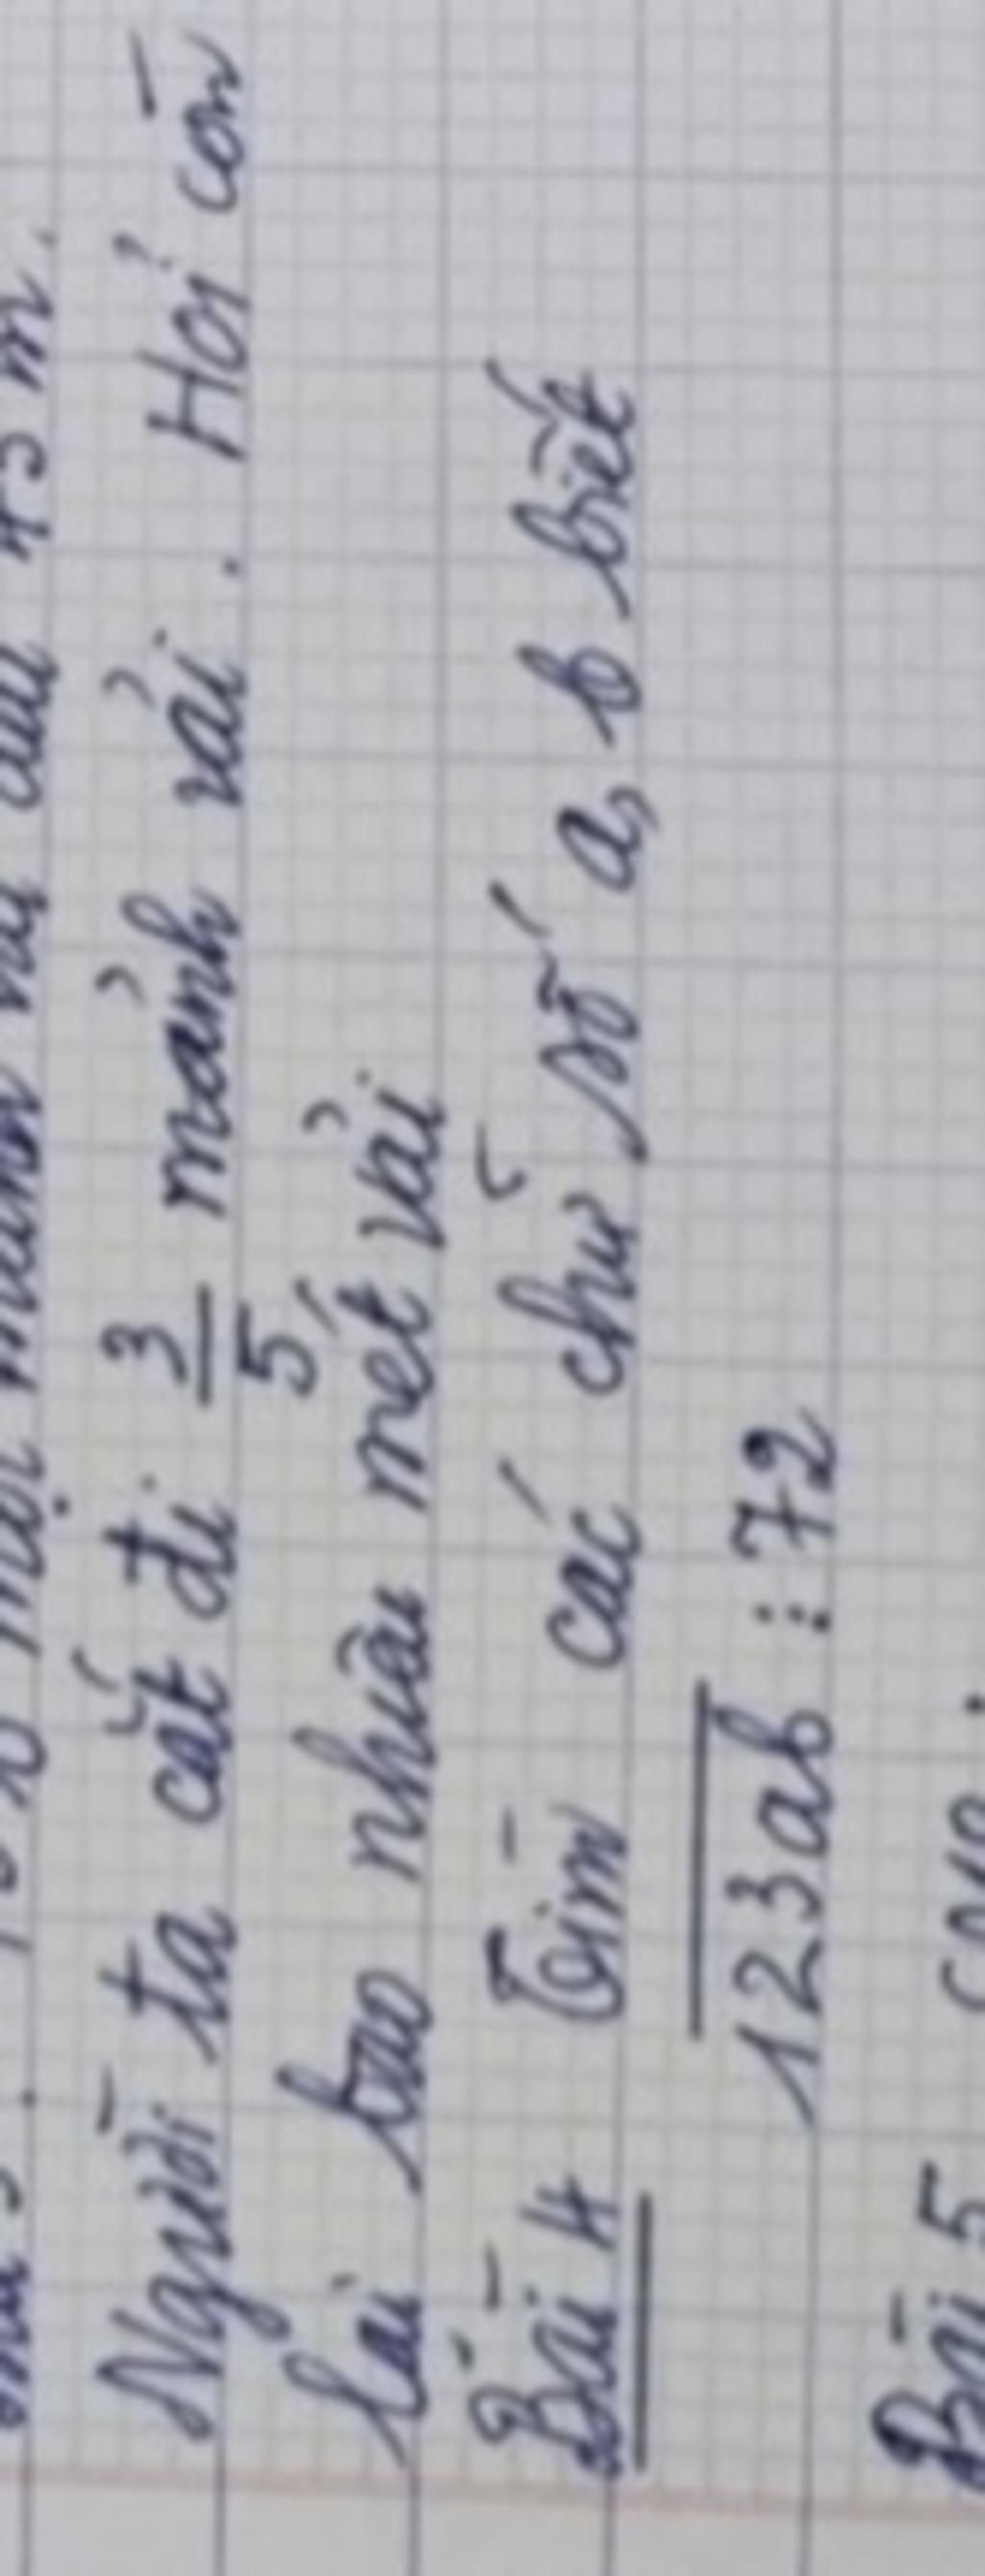 mảnh vải dài 45 m.
Người ta cắt đi 3/5 mảnh vải. Hỏi còn
lại bao nhiêu mét vải
Bài 4 Tìm các chữ số a, b biết
123ab ⋮ 72
Bài 5